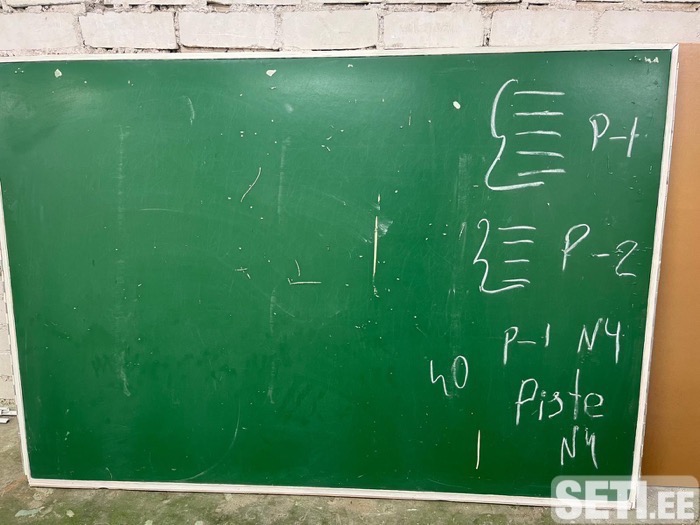 P-1
P-2
P-1 N4
40
Piste
N4
SETI.EE